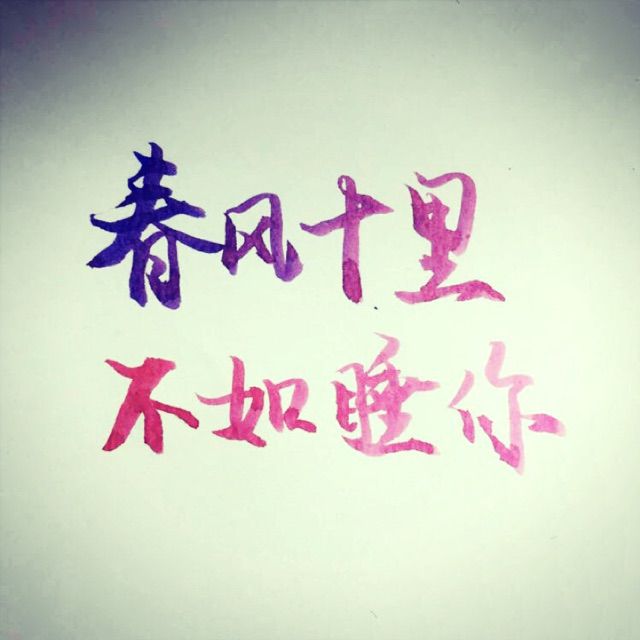 春风十里
不如睡你